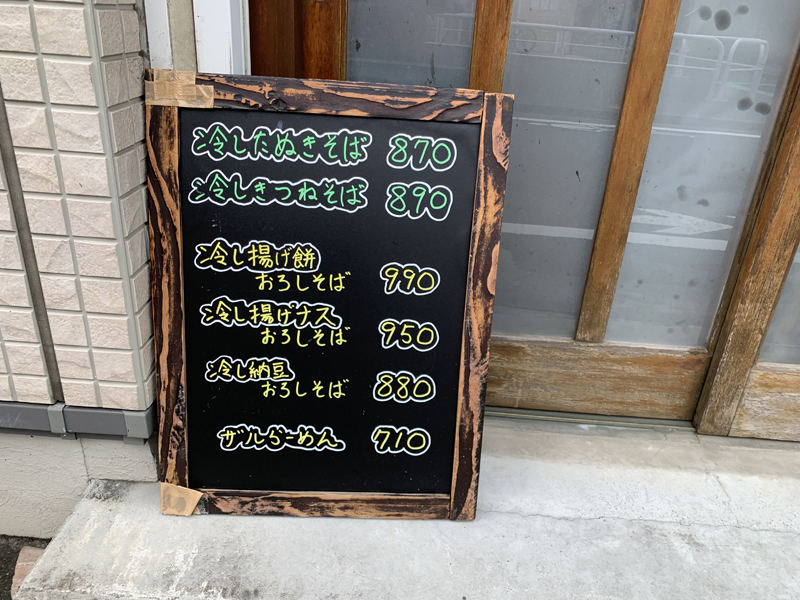 冷したぬきそば 870
冷しきつねそば 890
冷し揚げ餅
おろしそば 990
冷し揚げナス
おろしそば 950
冷し納豆
おろしそば 880
ザルらーめん 710